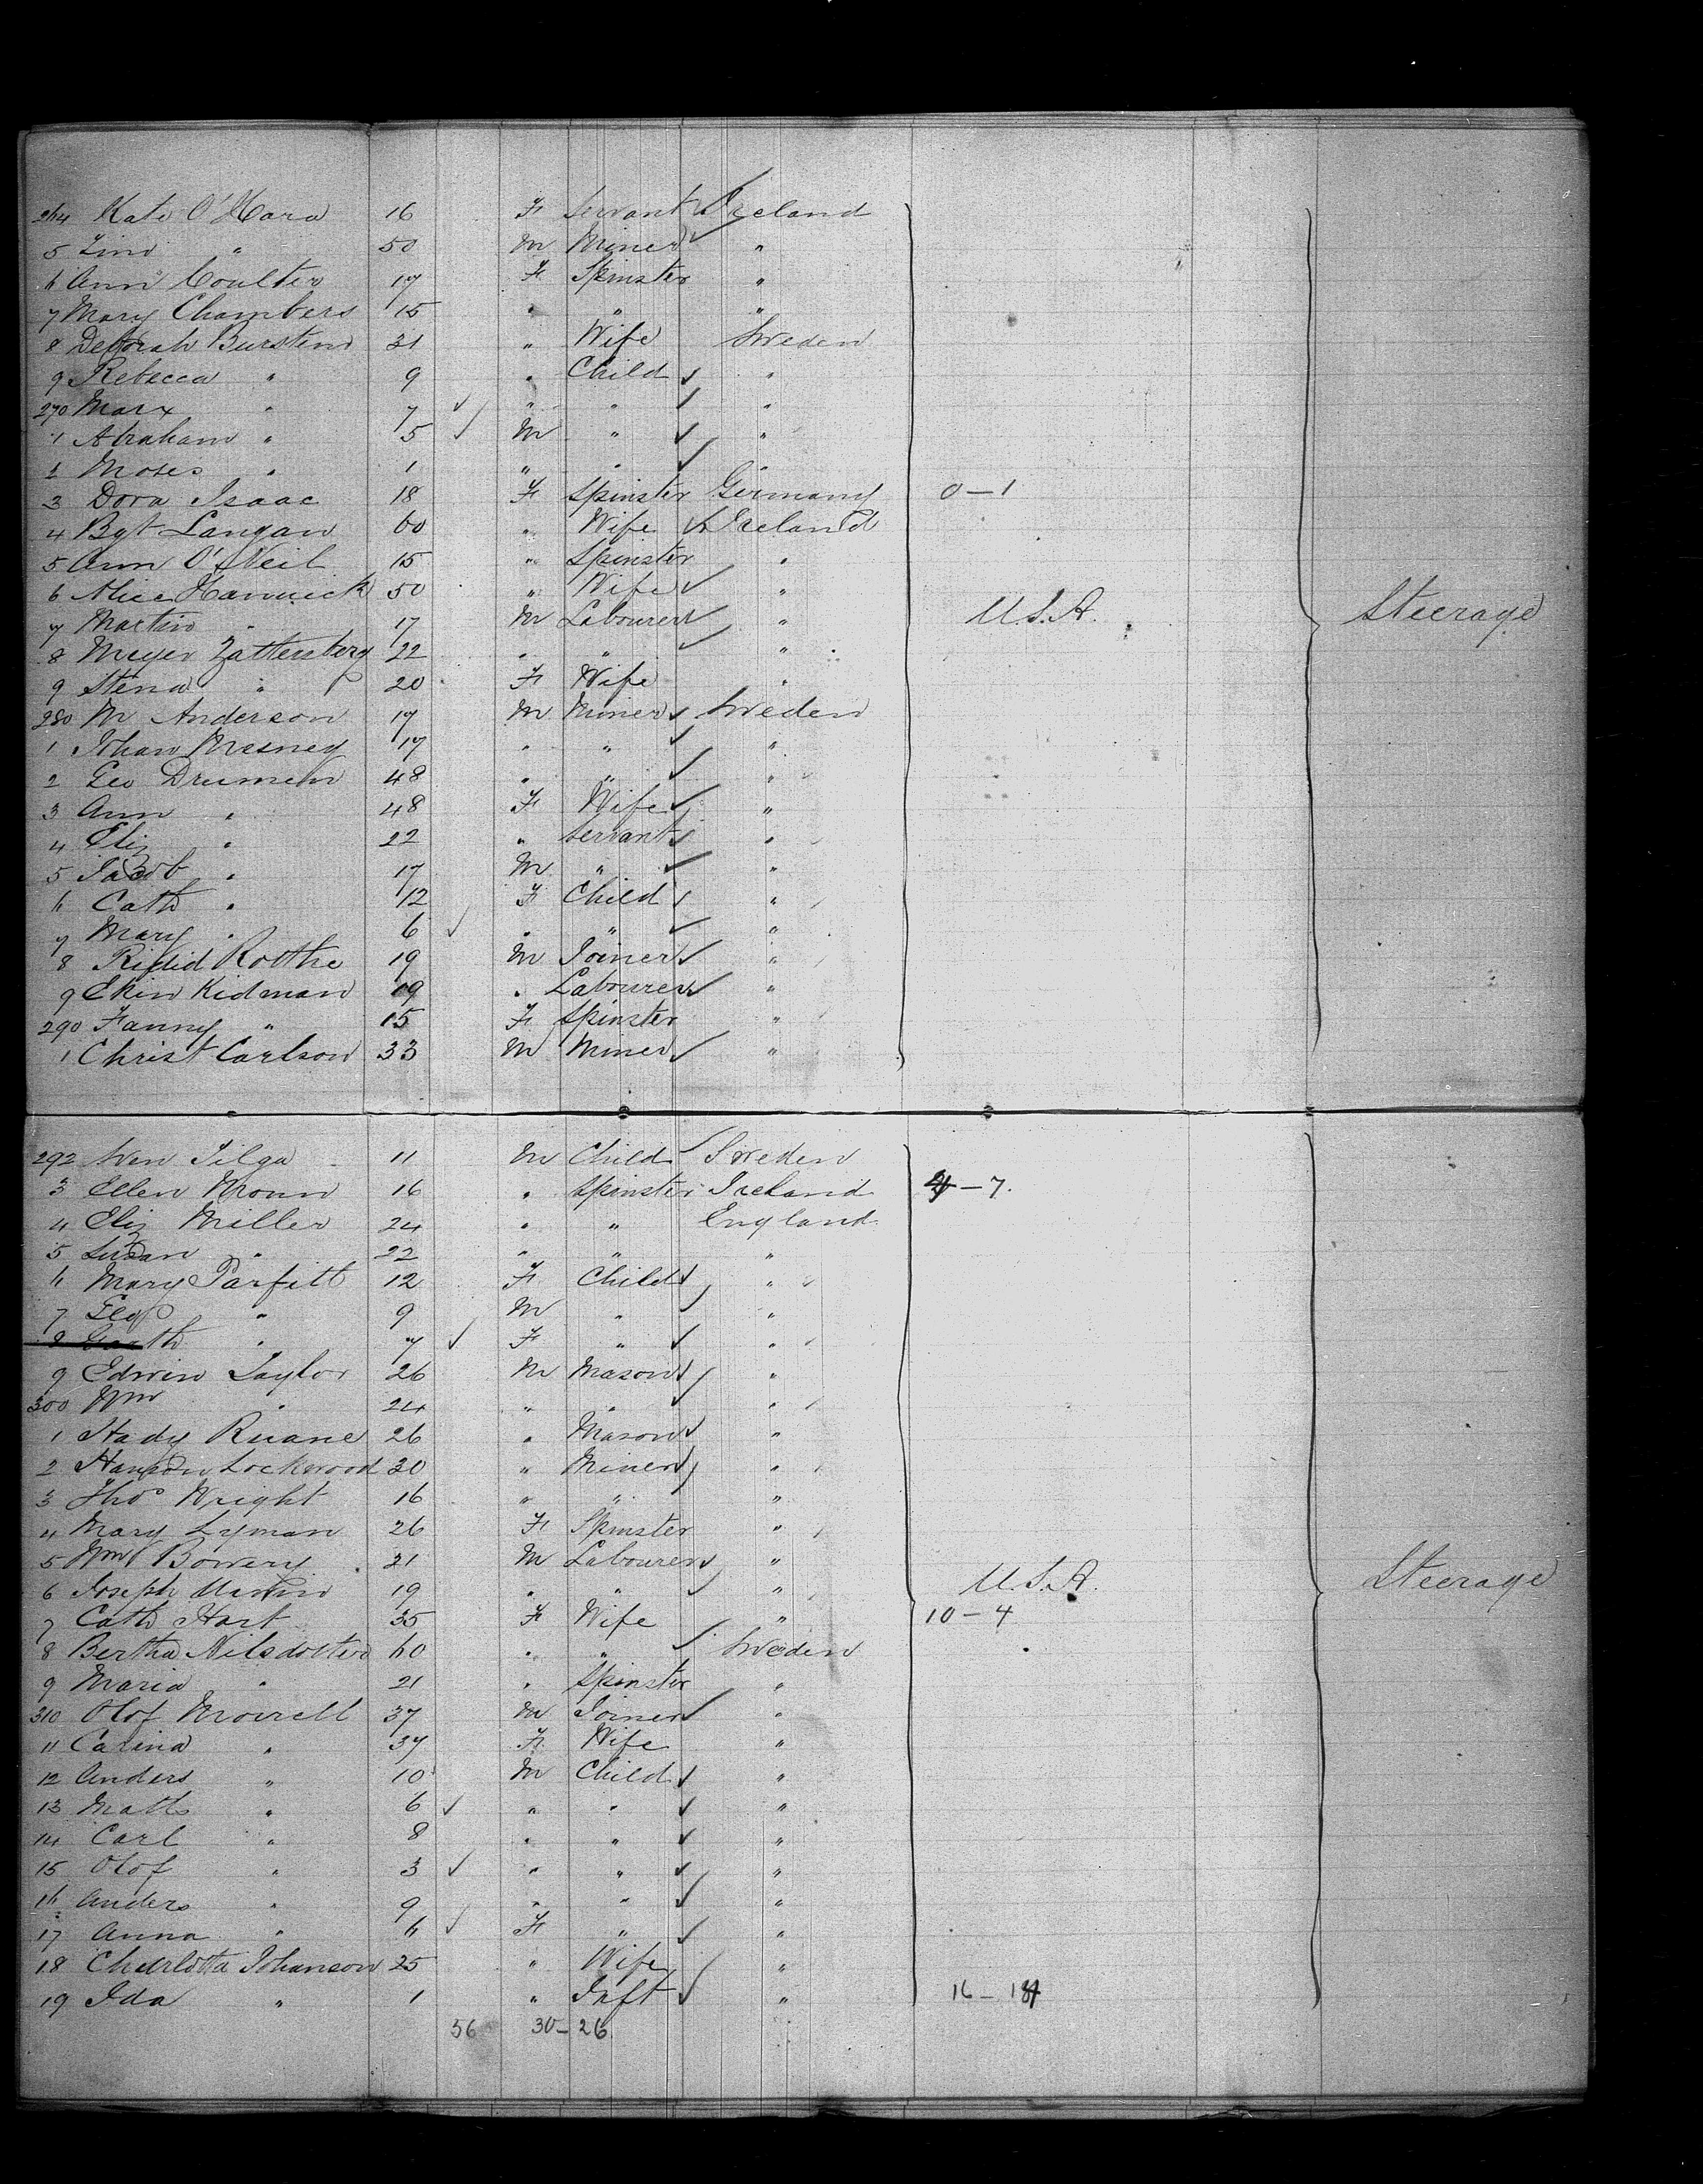 264 Kate O'Hara 16 F Servant Ireland
5 " 50 M Miner "
6 Ann Coulter 17 F Spinster "
7 Mary Chambers 15 " " "
8 Deborah Burstein 31 " Wife Sweden
9 Rebecca " 9 " Child "
270 Marx " 7 " " "
1 Abraham " 5 M " "
2 Moses " 1 " " "
3 Dora Isaac 18 F Spinster Germany 0-1
4 Bgt Langan 60 " Wife Ireland
5 Ann O'Neil 15 " Spinster "
6 Alice 50 " Wife "
7 Martin " 17 M Labourer " U.S.A. Steerage
8 Meyer Zattersberg 22 " " "
9 Stena " 20 F Wife "
280 M Anderson 17 M Miner Sweden
1 Johan 17 " " "
2 Geo 48 " " "
3 Ann " 48 F Wife "
4 Eliz " 22 " Servant "
5 Jacob " 17 M " "
6 Cath " 12 F Child "
7 Mary " 6 " " "
8 Rothe 19 M Joiner "
9 Kidman 19 " Labourer "
290 Fanny " 15 F Spinster "
1 Christ Carlson 33 M Miner "
292 11 M Child Sweden
3 Ellen 16 " Spinster Ireland - 7.
4 Eliz Miller 24 " " England
5 Susan " 22 " " "
6 Mary Parfitt 12 F Child "
7 Geo " 9 M " "
8 " 7 F " "
9 Edwin Taylor 26 M Mason "
300 Wm " 24 " " "
1 Ruane 26 " Mason "
2 Lockwood 30 " Miner "
3 Thos Wright 16 " " "
4 Mary Lyman 26 F Spinster "
5 Wm Bowery 21 M Labourer " U.S.A. Steerage
6 Joseph 19 " " "
7 Cath Hart 35 F Wife " 10-4
8 Bertha Nilsdotter 60 " " Sweden
9 Maria " 21 " Spinster "
310 Olof 37 M Joiner "
11 Carina " 37 F Wife "
12 Anders " 10 M Child "
13 Matts " 6 " " "
14 Carl " 8 " " "
15 Olof " 3 " " "
16 Anders " 9 " " "
17 Anna " 6 F " "
18 Charlotta Johanson 25 " Wife "
19 Ida " 1 " Inft " 16 -
56 30-26